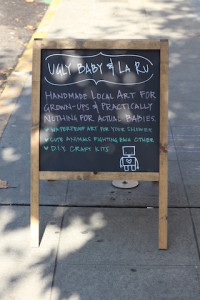 Ugly Baby & La Ru
Handmade Local Art for
Grown-ups & Practically
Nothing for Actual Babies
Waterproof Art for Your Shower
Cute Animals Fighting Each Other
D.I.Y. Craft Kits